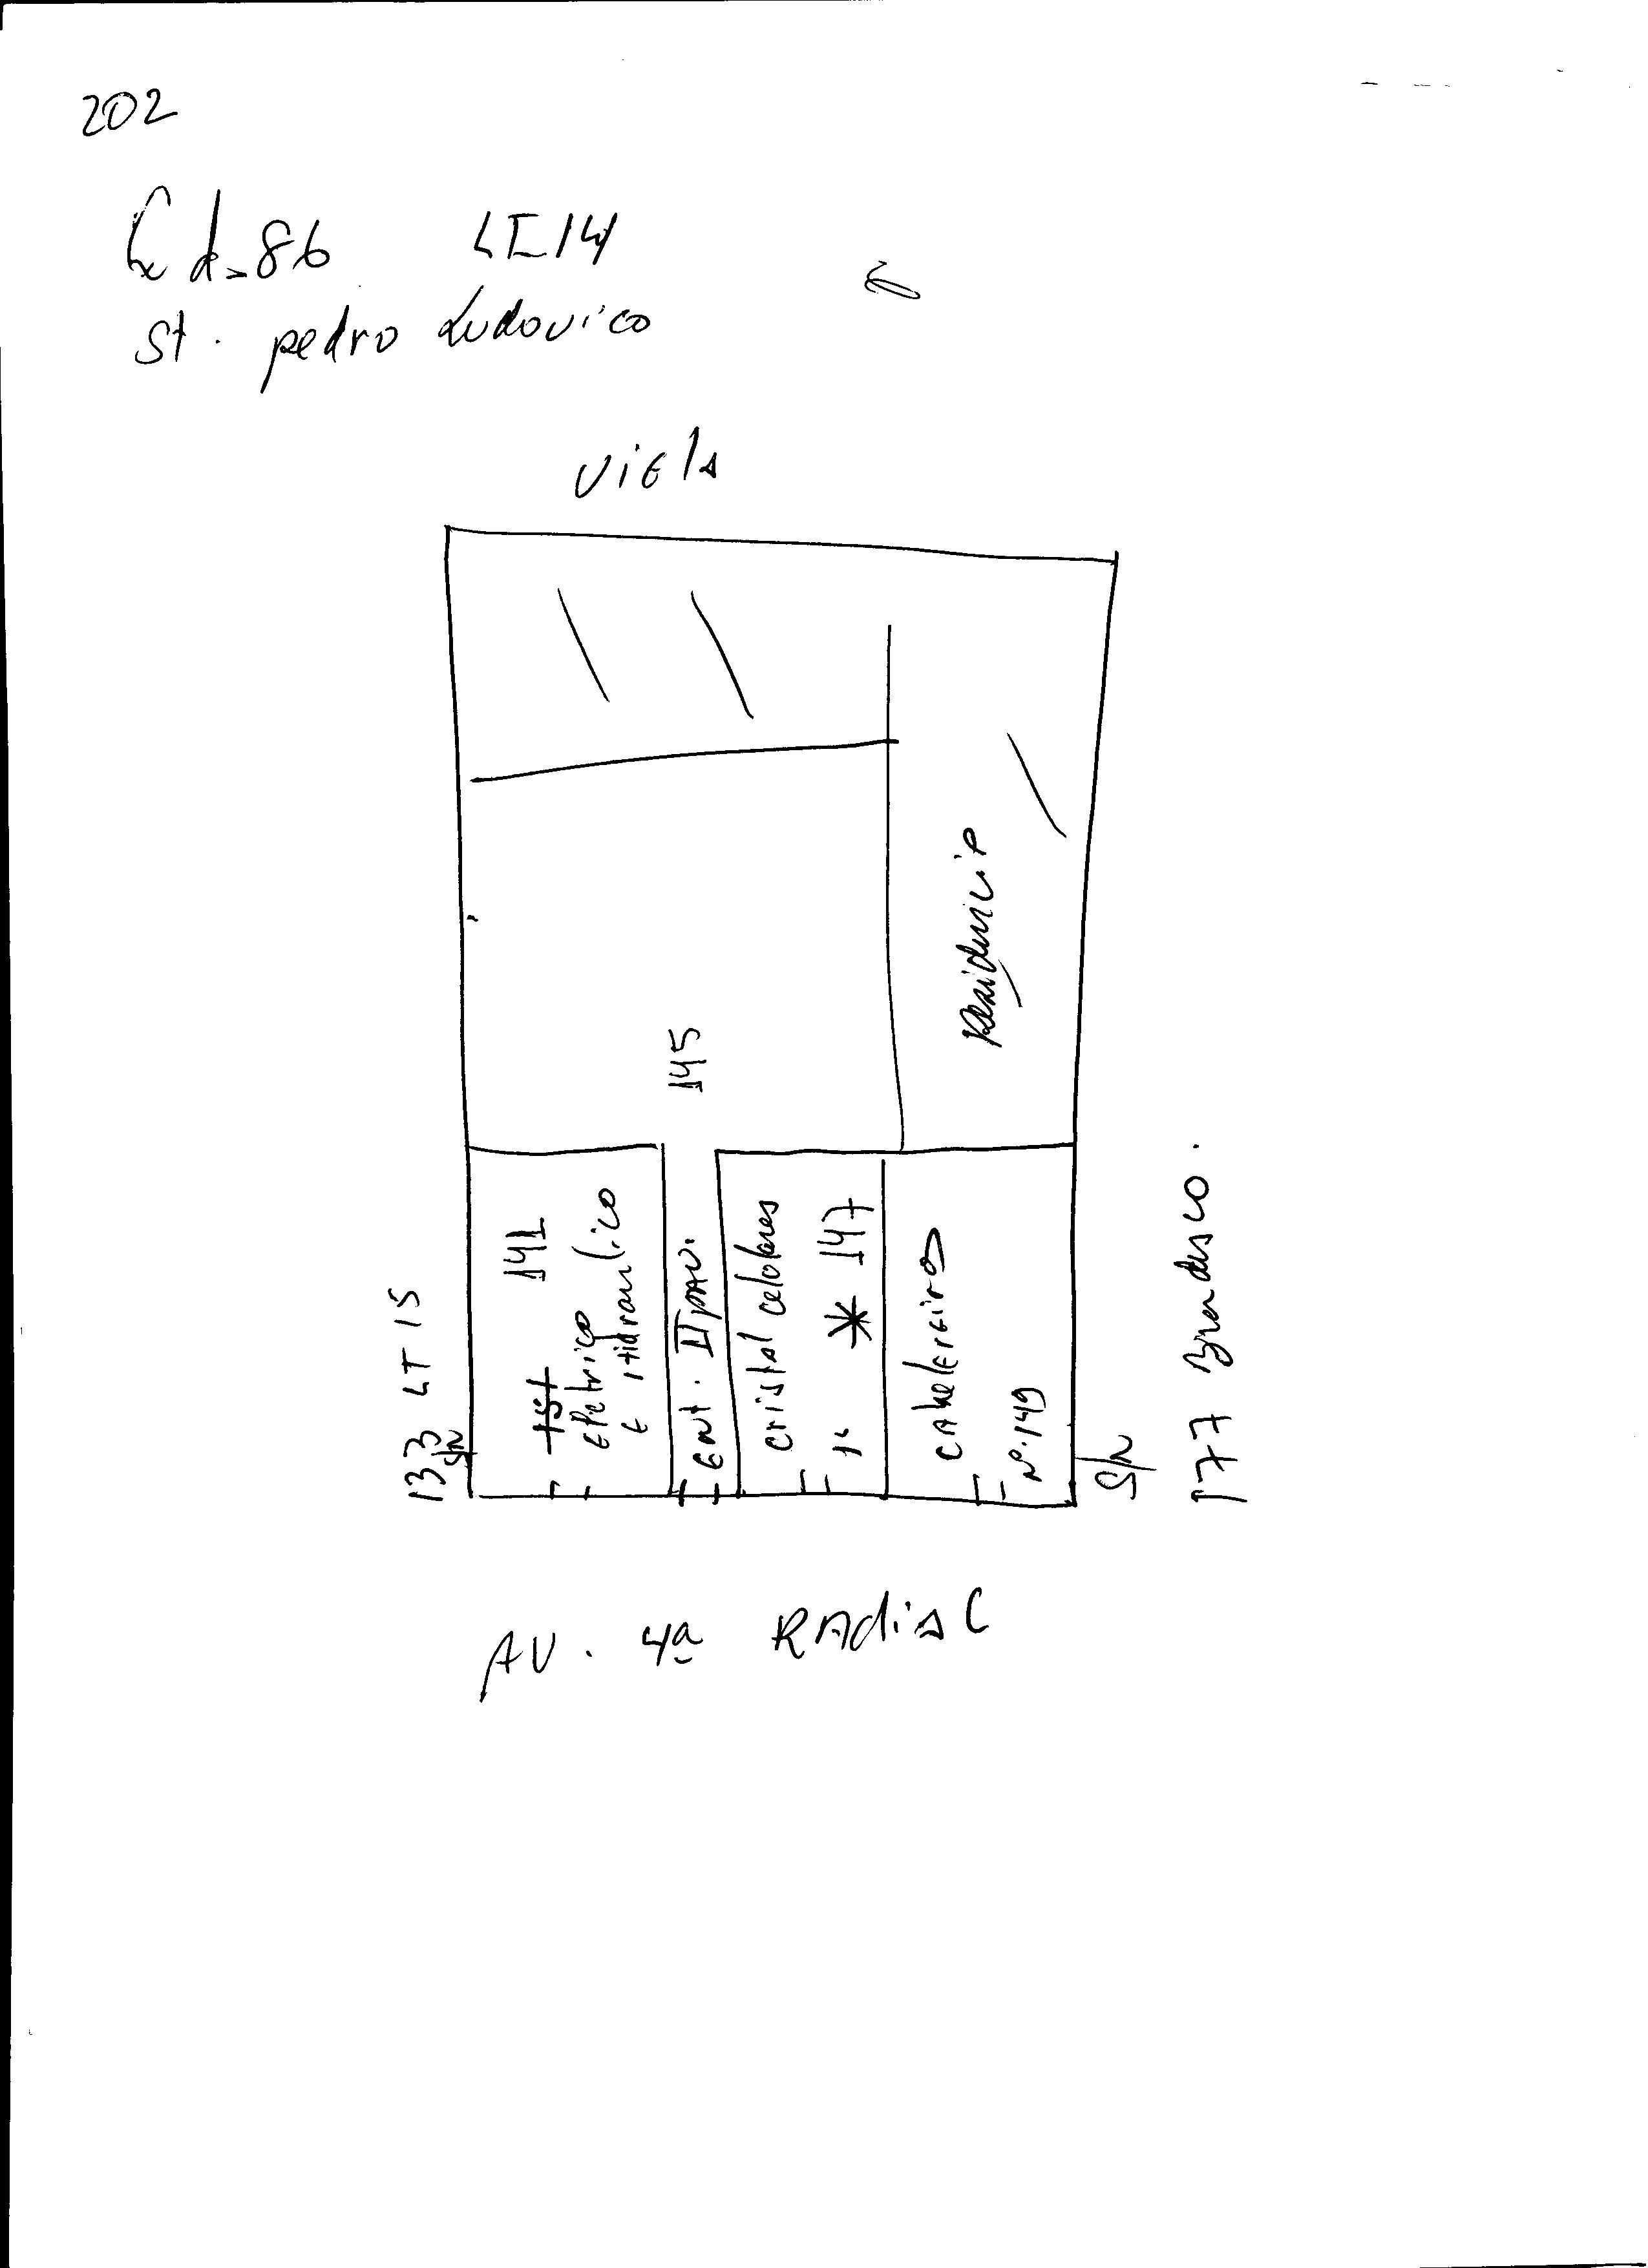 202
Qd-86 LT14
St. pedro Ludovico
viela
145
Residencia
141
151
Eletrico
E Hidraulico
Ent. II pav.
cristal celolares
* 147
cabelereiro
Nº. 149
133 LT 15
S/N
S/N
177 Brandesco.
AV. 4ª RAdial